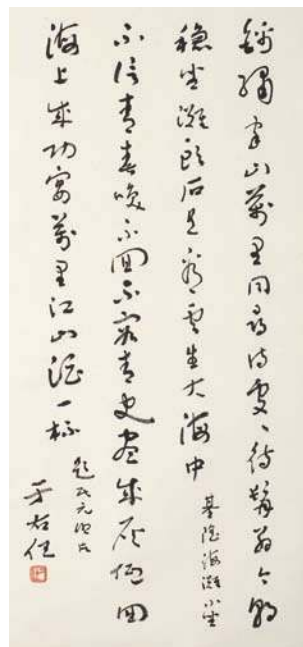 錦繡家山萬里同尋詩處〻待髯翁今朝
穩坐灘頭石看雲生大海中 基隆海灘小坐
不信青春喚不回不容青史盡成灰低回
海上成功宴萬里江山酒一杯
題民元照片
于右任